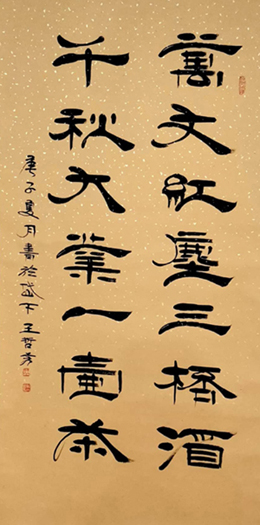 萬丈紅塵三桮酒
千秋大業一壺茶
庚子夏月書於岱下王哲秀